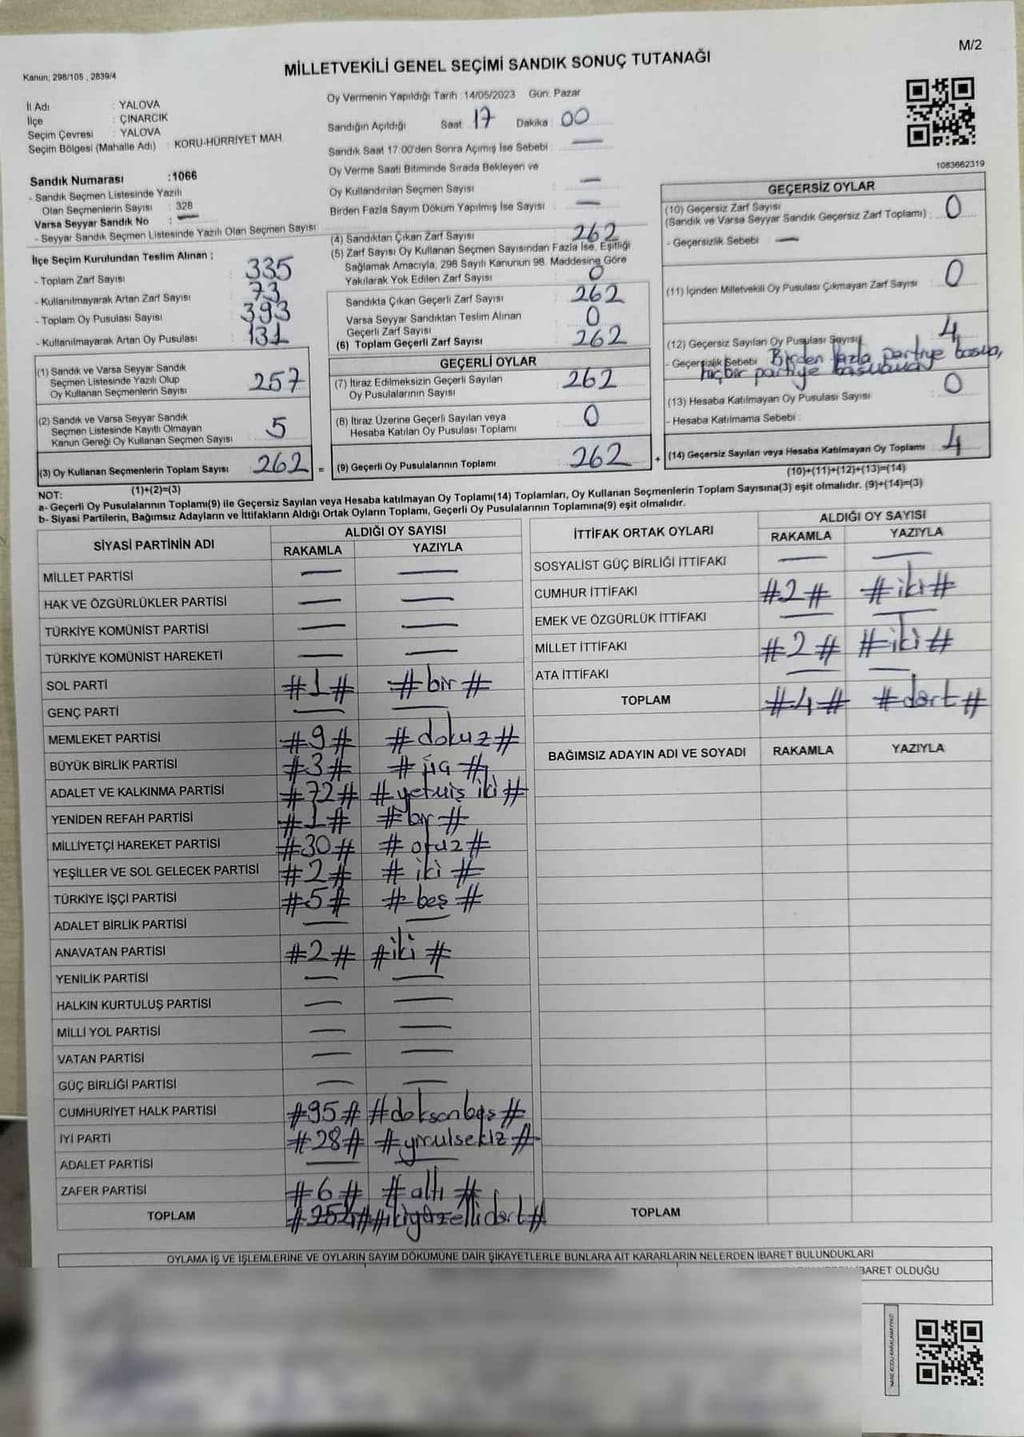 M/2
Kanun; 298/105 , 2839/4
MİLLETVEKİLİ GENEL SEÇİMİ SANDIK SONUÇ TUTANAĞI
İl Adı : YALOVA
İlçe : ÇINARCIK
Seçim Çevresi : YALOVA
Seçim Bölgesi (Mahalle Adı) : KORU-HÜRRİYET MAH
Sandık Numarası :1066
- Sandık Seçmen Listesinde Yazılı
Olan Seçmenlerin Sayısı : 328
Varsa Seyyar Sandık No : —
- Seyyar Sandık Seçmen Listesinde Yazılı Olan Seçmen Sayısı
İlçe Seçim Kurulundan Teslim Alınan ;
- Toplam Zarf Sayısı : 335
- Kullanılmayarak Artan Zarf Sayısı : 73
- Toplam Oy Pusulası Sayısı : 393
- Kullanılmayarak Artan Oy Pusulası : 131
(1) Sandık ve Varsa Seyyar Sandık
Seçmen Listesinde Yazılı Olup
Oy Kullanan Seçmenlerin Sayısı 257
(2) Sandık ve Varsa Seyyar Sandık
Seçmen Listesinde Kayıtlı Olmayan
Kanun Gereği Oy Kullanan Seçmen Sayısı 5
(3) Oy Kullanan Seçmenlerin Toplam Sayısı 262 =
(1)+(2)=(3)
Oy Vermenin Yapıldığı Tarih :14/05/2023 Gün: Pazar
Sandığın Açıldığı Saat 17 Dakika 00
Sandık Saat 17:00'den Sonra Açımış İse Sebebi : —
Oy Verme Saati Bitiminde Sırada Bekleyen ve
Oy Kullandırılan Seçmen Sayısı —
Birden Fazla Sayım Döküm Yapılmış İse Sayısı —
(4) Sandıktan Çıkan Zarf Sayısı 262
(5) Zarf Sayısı Oy Kullanan Seçmen Sayısından Fazla İse, Eşitliği
Sağlamak Amacıyla, 298 Sayılı Kanunun 98. Maddesine Göre
Yakılarak Yok Edilen Zarf Sayısı 0
Sandıkta Çıkan Geçerli Zarf Sayısı 262
Varsa Seyyar Sandıktan Teslim Alınan
Geçerli Zarf Sayısı 0
(6) Toplam Geçerli Zarf Sayısı 262
GEÇERLİ OYLAR
(7) İtiraz Edilmeksizin Geçerli Sayılan
Oy Pusulalarının Sayısı 262
(8) İtiraz Üzerine Geçerli Sayılan veya
Hesaba Katılan Oy Pusulası Toplamı 0
(9) Geçerli Oy Pusulalarının Toplamı 262 +
1083662319
GEÇERSİZ OYLAR
(10) Geçersiz Zarf Sayısı
(Sandık ve Varsa Seyyar Sandık Geçersiz Zarf Toplamı) 0
- Geçersizlik Sebebi —
(11) İçinden Milletvekili Oy Pusulası Çıkmayan Zarf Sayısı 0
(12) Geçersiz Sayılan Oy Pusulası Sayısı 4
- Geçersizlik Sebebi Birden fazla partiye basma,
hiçbir partiye basmama
(13) Hesaba Katılmayan Oy Pusulası Sayısı 0
- Hesaba Katılmama Sebebi
(14) Geçersiz Sayılan veya Hesaba Katılmayan Oy Toplamı 4
(10)+(11)+(12)+(13)=(14)
NOT:
a- Geçerli Oy Pusulalarının Toplamı(9) ile Geçersiz Sayılan veya Hesaba katılmayan Oy Toplamı(14) Toplamları, Oy Kullanan Seçmenlerin Toplam Sayısına(3) eşit olmalıdır. (9)+(14)=(3)
b- Siyasi Partilerin, Bağımsız Adayların ve İttifakların Aldığı Oyların Toplamı, Geçerli Oy Pusulalarının Toplamına(9) eşit olmalıdır.
SİYASİ PARTİNİN ADI ALDIĞI OY SAYISI
RAKAMLA YAZIYLA
MİLLET PARTİSİ — —
HAK VE ÖZGÜRLÜKLER PARTİSİ — —
TÜRKİYE KOMÜNİST PARTİSİ — —
TÜRKİYE KOMÜNİST HAREKETİ — —
SOL PARTİ #1# #bir#
GENÇ PARTİ — —
MEMLEKET PARTİSİ #9# #dokuz#
BÜYÜK BİRLİK PARTİSİ #3# #üç#
ADALET VE KALKINMA PARTİSİ #72# #yetmiş iki#
YENİDEN REFAH PARTİSİ #1# #bir#
MİLLİYETÇİ HAREKET PARTİSİ #30# #otuz#
YEŞİLLER VE SOL GELECEK PARTİSİ #2# #iki#
TÜRKİYE İŞÇİ PARTİSİ #5# #beş#
ADALET BİRLİK PARTİSİ — —
ANAVATAN PARTİSİ #2# #iki#
YENİLİK PARTİSİ — —
HALKIN KURTULUŞ PARTİSİ — —
MİLLİ YOL PARTİSİ — —
VATAN PARTİSİ — —
GÜÇ BİRLİĞİ PARTİSİ — —
CUMHURİYET HALK PARTİSİ #95# #doksanbeş#
İYİ PARTİ #28# #yirmisekiz#
ADALET PARTİSİ — —
ZAFER PARTİSİ #6# #altı#
TOPLAM #254# #ikiyüzellidört#
İTTİFAK ORTAK OYLARI ALDIĞI OY SAYISI
RAKAMLA YAZIYLA
SOSYALİST GÜÇ BİRLİĞİ İTTİFAKI — —
CUMHUR İTTİFAKI #2# #iki#
EMEK VE ÖZGÜRLÜK İTTİFAKI — —
MİLLET İTTİFAKI #2# #iki#
ATA İTTİFAKI — —
TOPLAM #4# #dört#
BAĞIMSIZ ADAYIN ADI VE SOYADI RAKAMLA YAZIYLA
TOPLAM
OYLAMA İŞ VE İŞLEMLERİNE VE OYLARIN SAYIM DÖKÜMÜNE DAİR ŞİKAYETLERLE BUNLARA AİT KARARLARIN NELERDEN İBARET BULUNDUKLARI
BARET OLDUĞU